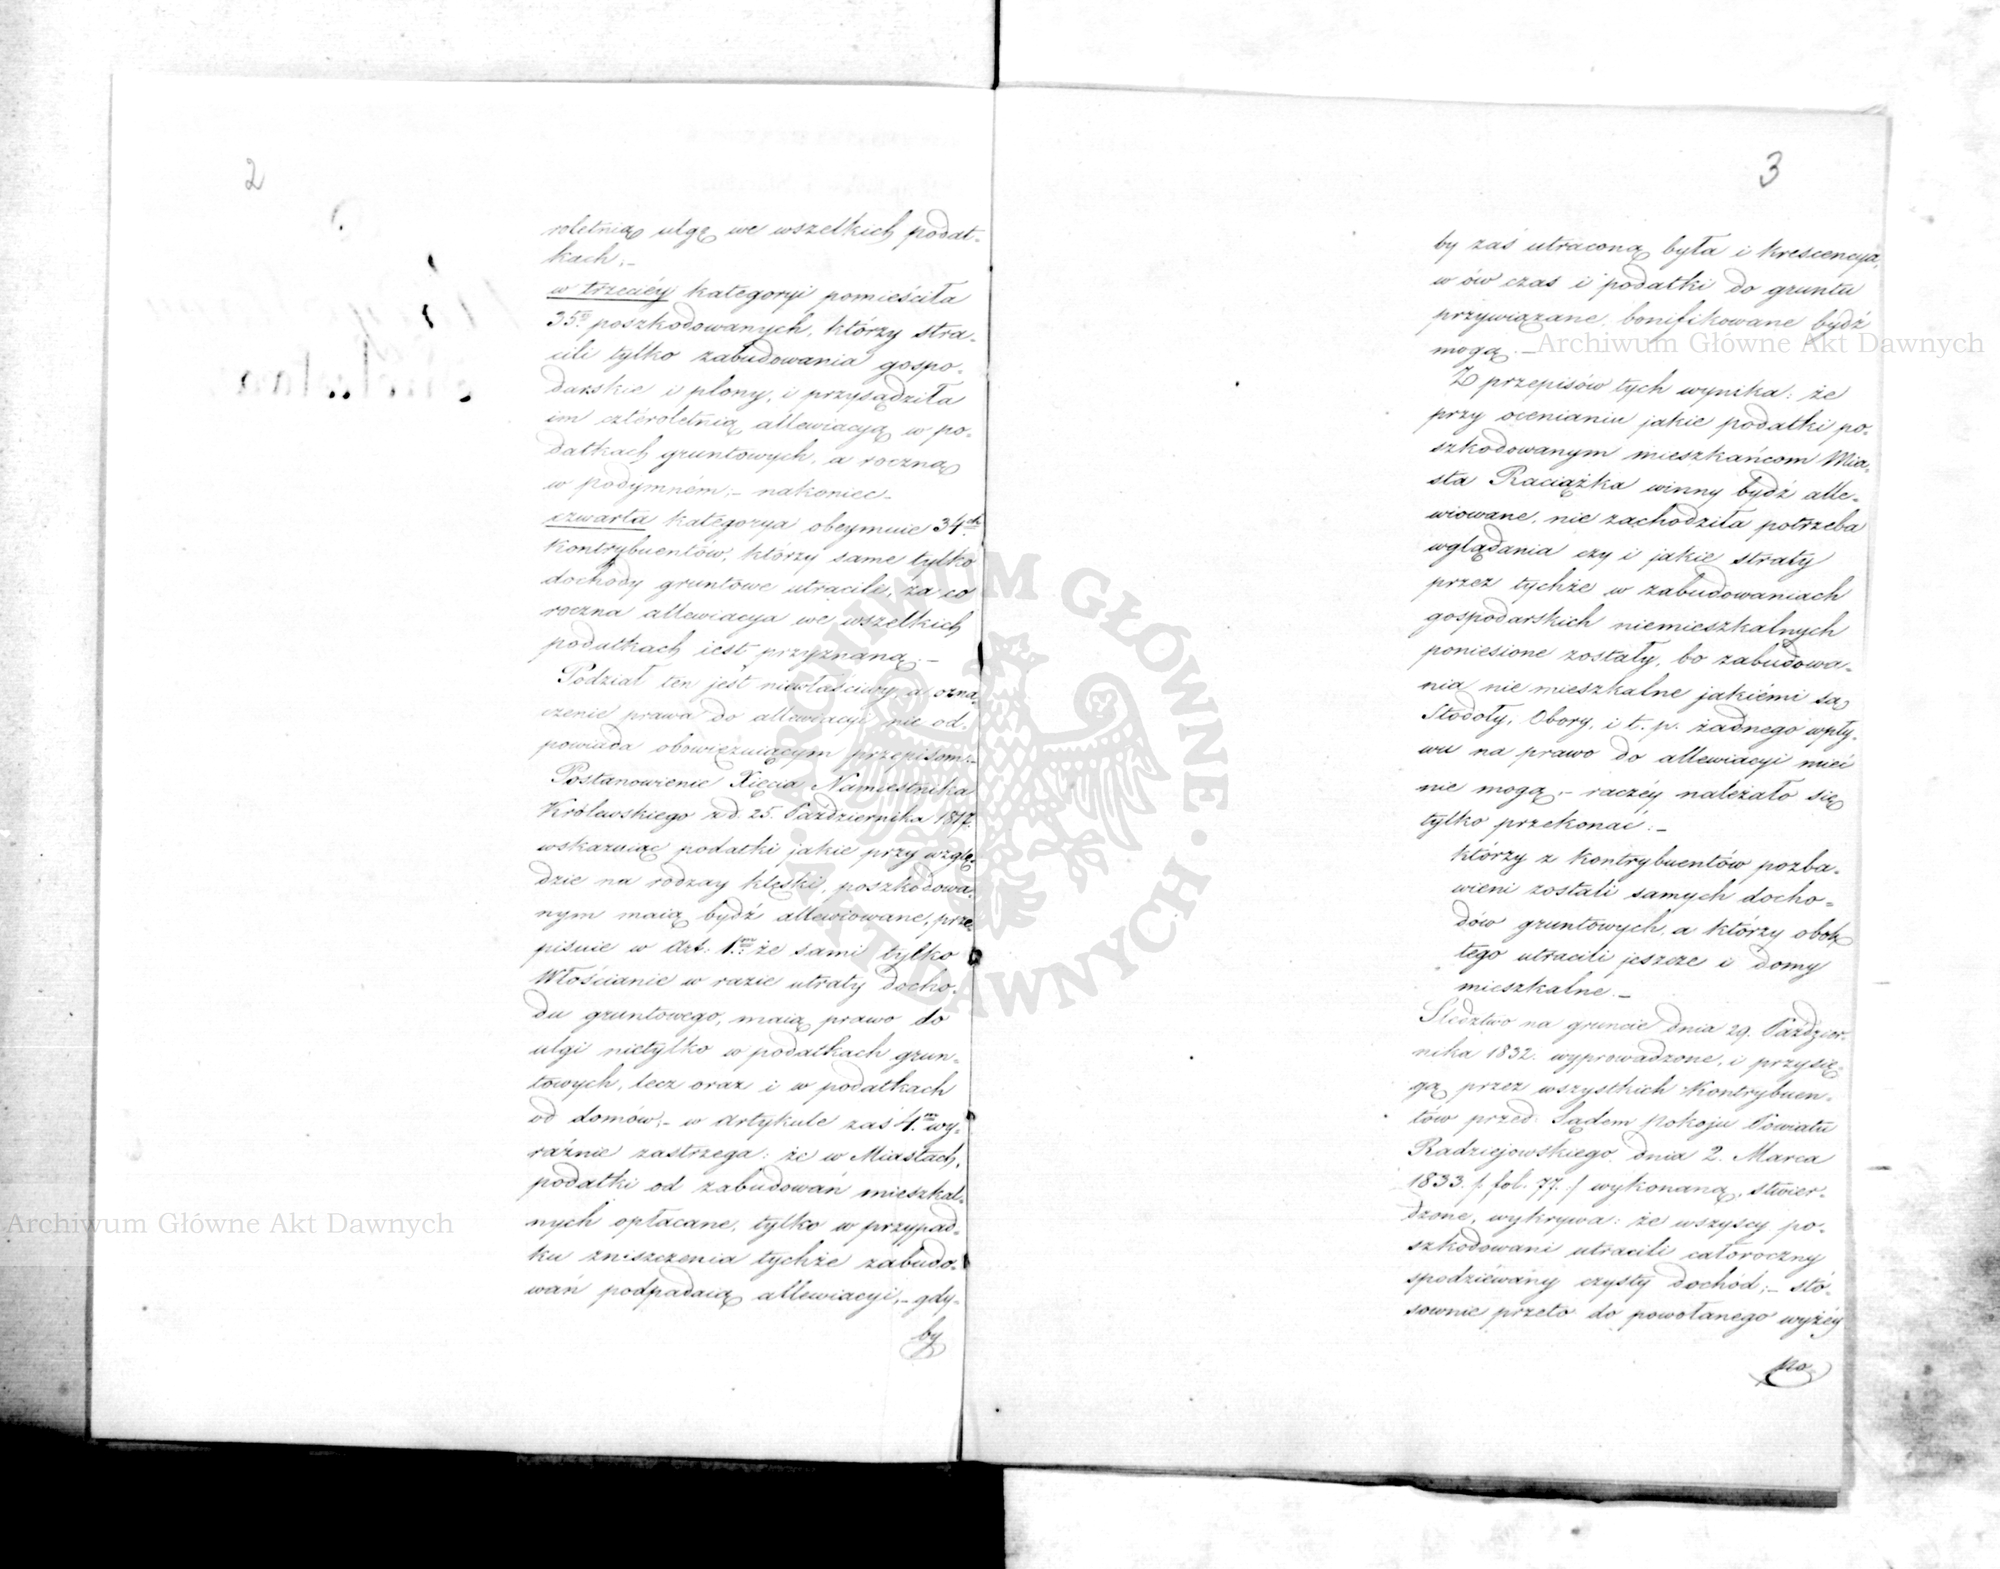 2
roletnią ulgę we wszelkich podat-
kach.-
w trzeciéy kategoryi pomieściła
35u poszkodowanych, którzy stra-
cili tylko zabudowania gospo-
darskie i plony, i przysądziła
im cztéroletnią allewiacyą w po-
datkach gruntowych, a roczną
w podymném;- nakoniec-
czwarta kategorya obeymuie 34ch
kontrybuentów, którzy same tylko
dochody gruntowe utracili, za co
roczna allewiacya we wszelkich
podatkach iest przyznaną.-
Podział ten jest niewłaściwy, a ozna-
czenie prawa do allewiacyi nie od-
powiada obowięzuiącym przepisom:-
Postanowienie Xięcia Namiestnika
Królewskiego z d. 25. Października 1817.
wskazuiąc podatki jakie przy wzglę-
dzie na rodzay klęski, poszkodowa-
nym maią bydź allewiowane, prze-
pisuie w Art: 1ym że sami tylko
Włościanie w razie utraty docho-
du gruntowego, maią prawo do
ulgi nietylko w podatkach grun-
towych, lecz oraz i w podatkach
od domów;- w artykule zaś 4.ym wy-
raźnie zastrzega: że w Miastach,
podatki od zabudowań mieszkal-
nych opłacane, tylko w przypad-
ku zniszczenia tychże zabudo-
wań podpadaią allewiacyi,- gdy-
by
3
by zaś utraconą była i krescencya,
w ów czas i podatki do gruntu
przywiązane, bonifikowane bydź
mogą.-
Z przepisów tych wynika: że
przy ocenianiu jakie podatki po-
szkodowanym mieszkańcom Mia-
sta Raciążka winny bydź alle-
wiowane, nie zachodziła potrzeba
wglądania czy i jakie straty
przez tychże w zabudowaniach
gospodarskich niemieszkalnych
poniesione zostały, bo zabudowa-
nia nie mieszkalne jakiémi są
Stodoły, Obory, i t. p. żadnego wpły-
wu na prawo do allewiacyi mieć
nie mogą,- raczéy należało się
tylko przekonać:-
którzy z kontrybuentów pozba-
wieni zostali samych docho-
dów gruntowych, a którzy obok
tego utracili jeszcze i domy
mieszkalne.-
Śledztwo na gruncie dnia 29. Paździer-
nika 1832. wyprowadzone, i przysię-
gą przez wszystkich Kontrybuen-
tów przed Sądem Pokoju Powiatu
Radziejowskiego dnia 2. Marca
1833. /: fol. 77. :/ wykonaną, stwier-
dzone, wykrywa: że wszyscy po-
szkodowani utracili całoroczny
spodziéwány czysty dochód;- stó-
sownie przeto do powołanego wyżéy
po
Archiwum Główne Akt Dawnych
Archiwum Główne Akt Dawnych
ARCHIWUM GŁÓWNE AKT DAWNYCH